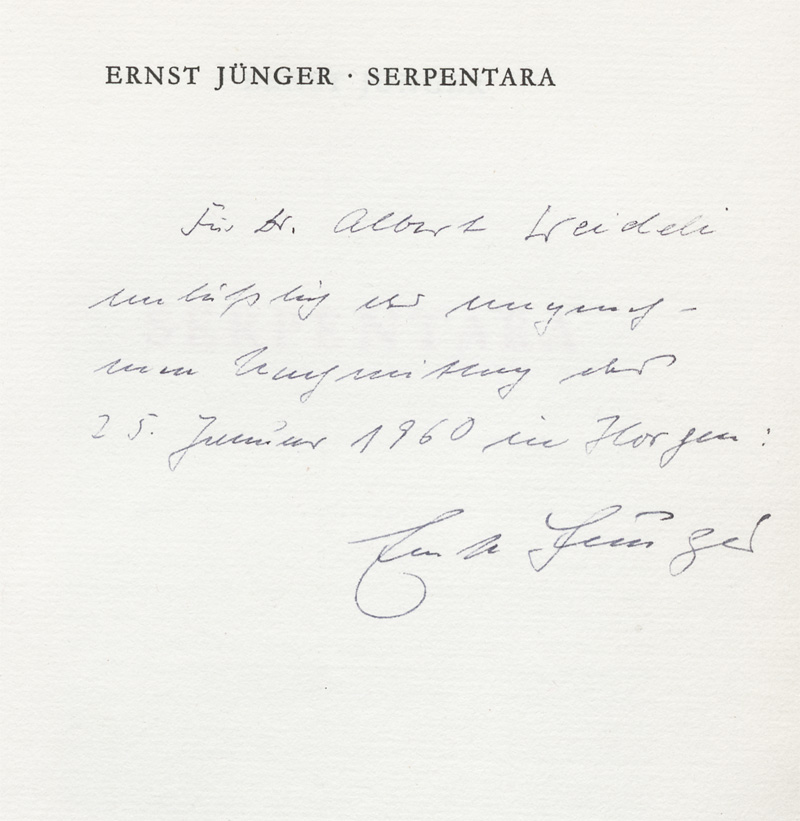 ERNST JÜNGER · SERPENTARA
Für Dr. Albert Weideli
anläßlich des angeneh-
men Nachmittags des
25. Januar 1960 in Horgen:
Ernst Jünger